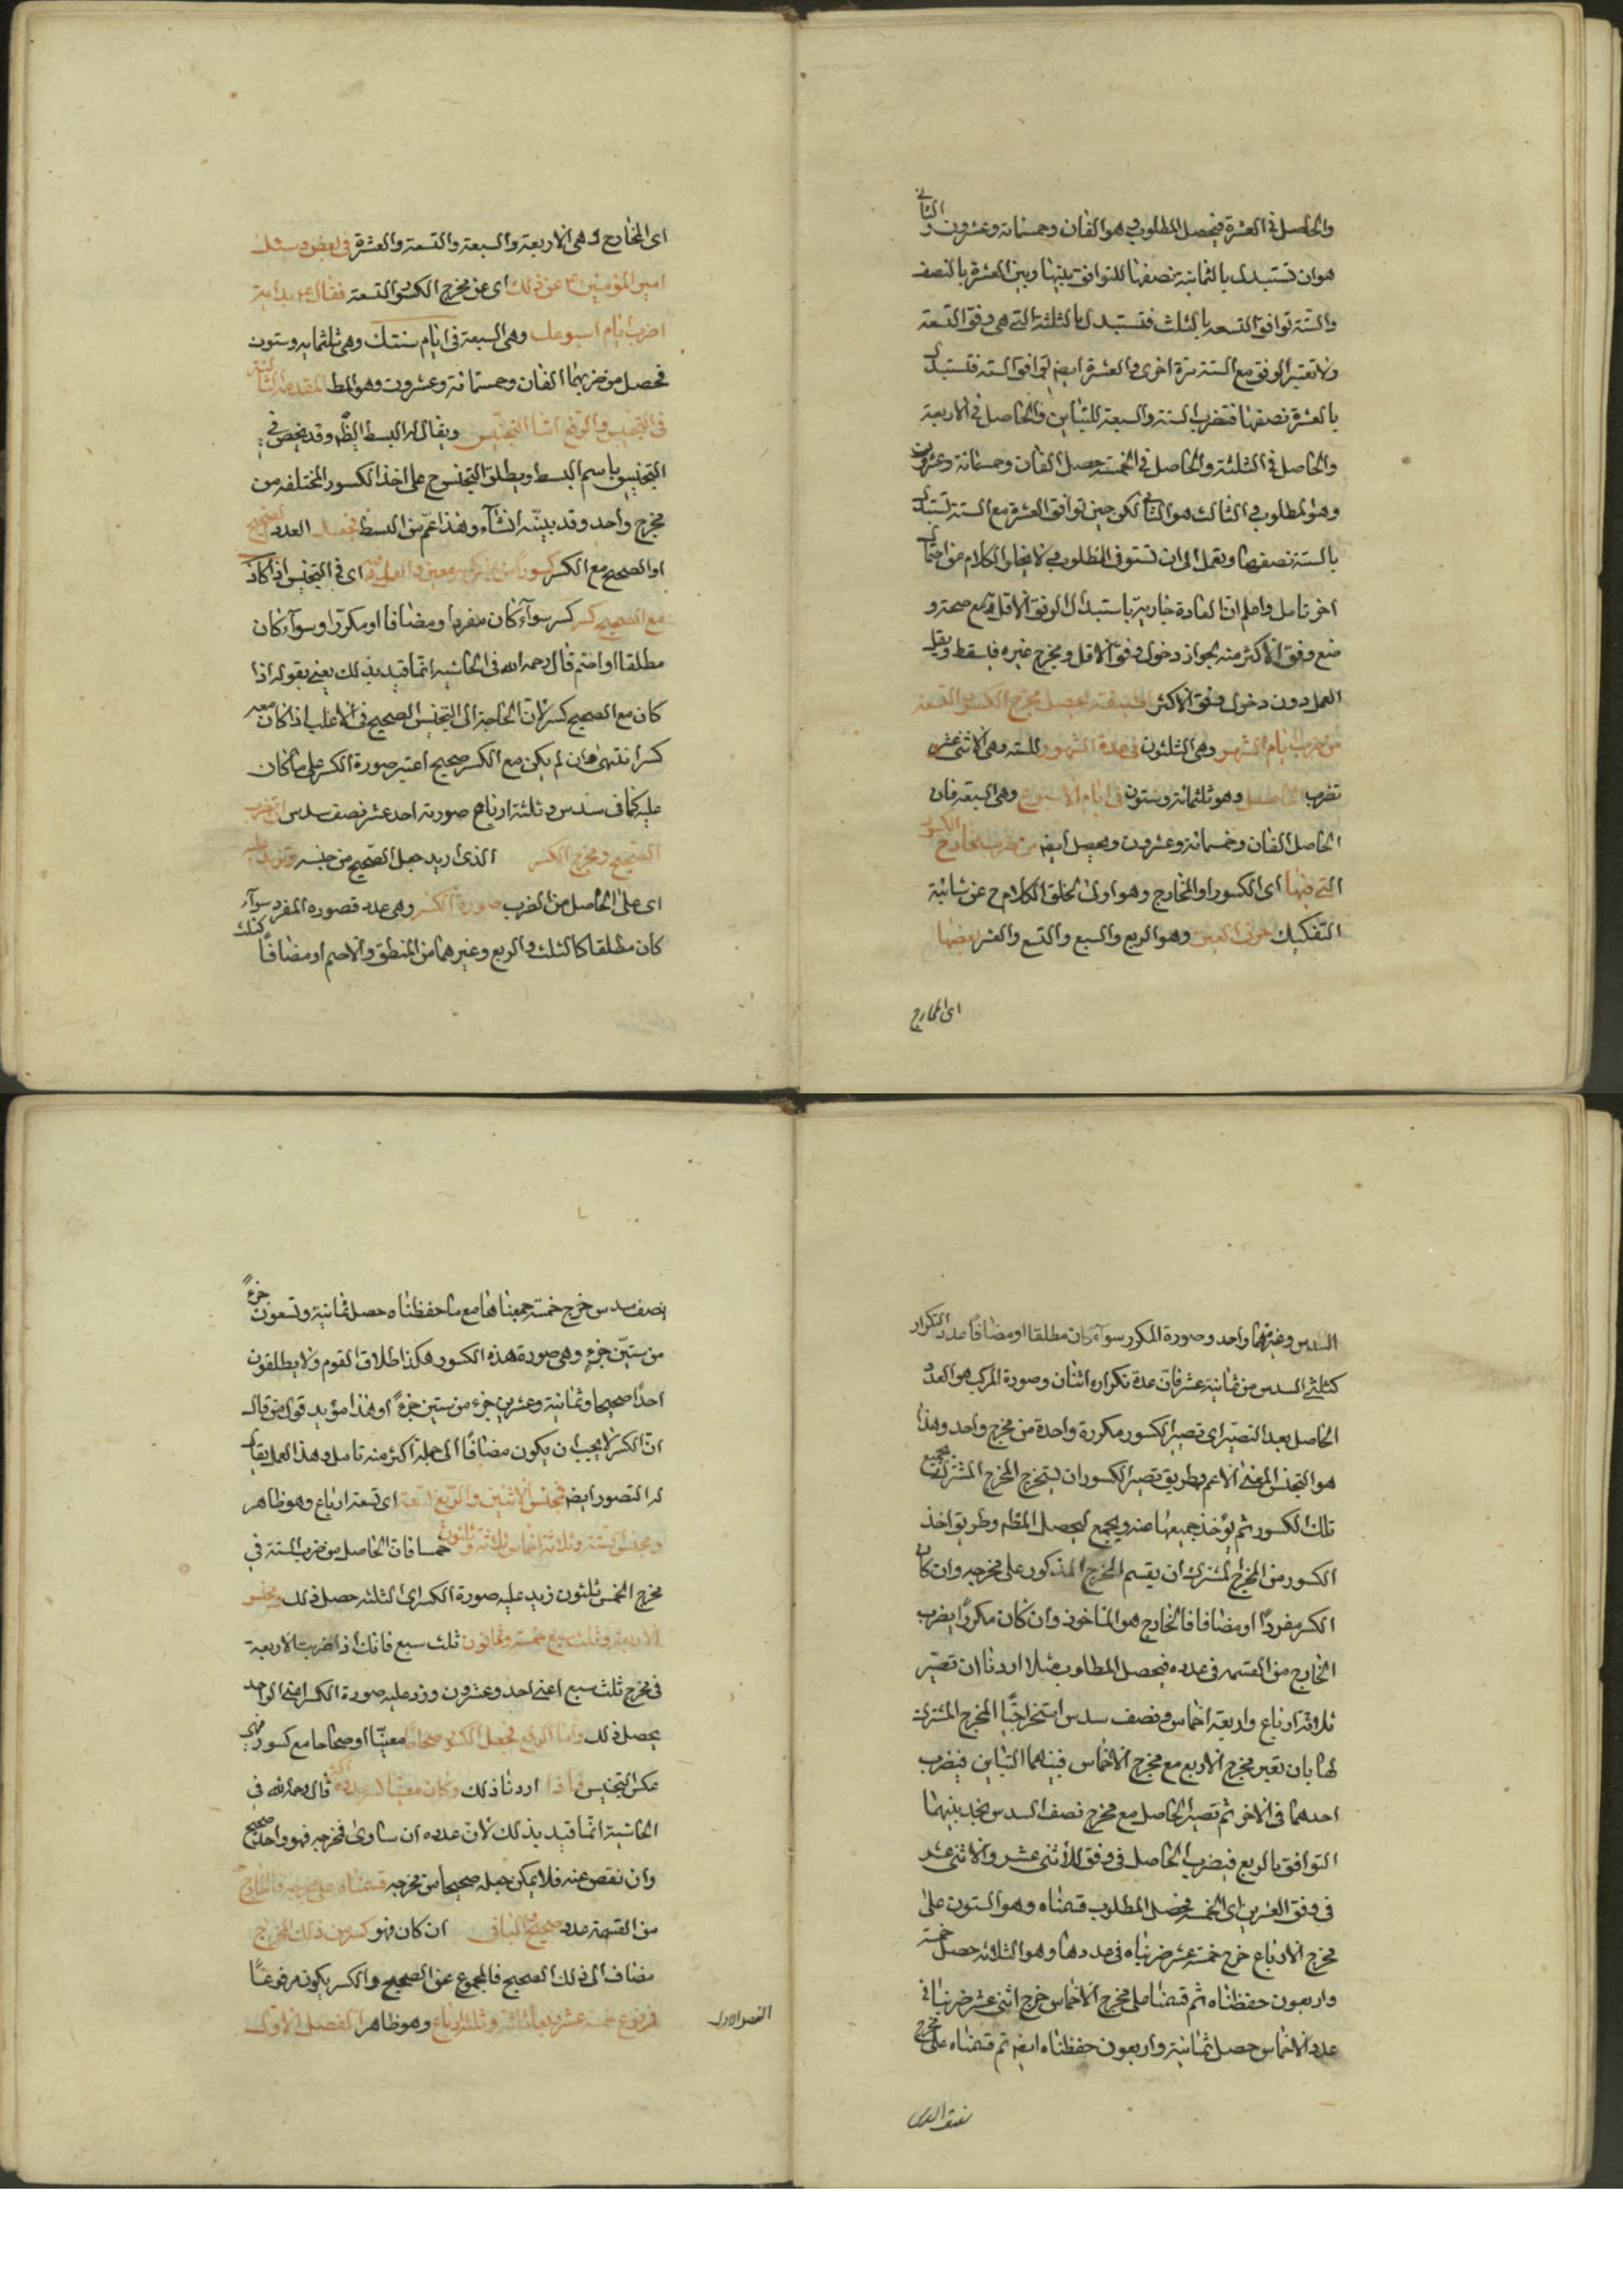 والحاصل في العشرة فيحصل المطلوب هو الفان وخمسمائة وعشرون والثاني
هو ان تستبدل بالثمانية نصفها للتوافق بينها وبين العشرة بالنصف
والستة توافق التسعة بالثلث فتستبدل بالثلثة التي هي وفق التسعة
ولا تعتبر الوفق مع الستة مرة اخرى والعشرة ايضا توافق الستة فتستبدل
بالعشرة نصفها فتضرب الستة والسبعة للتباين والحاصل في الاربعة
والحاصل في الثلثة والحاصل في الخمسة حصل الفان وخمسمائة وعشرون
وهو المطلوب الثالث هو الثاني لكن حين توافق العشرة مع الستة تستبدل
بالستة نصفها وتعمل الى ان تستوفي المطلوب ولا يخلو الكلام من احتمال
اخر تامل واعلم ان العادة جارية باستبدال الوفق الاقل مع صحة و
ضع وفق الاكثر منه لجواز دخول وفق الاقل ومخرج غيره فيسقط ويقل
العمل دون دخول وفق الاكثر لطيفة يحصل مخرج الكسور التسعة
من ضرب ايام الشهر وهي الثلثون في عدة الشهور للسنة وهي الاثنى عشر
تضرب الحاصل وهو ثلثمائة وستون في ايام الاسبوع وهي السبعة فان
الحاصل الفان وخمسمائة وعشرون ويحصل ايضا من ضرب مخارج الكسور
التي فيها اى الكسور او المخارج وهو اولى لخلو الكلام ح عن شائبة
التفكيك حرف العين وهو الربع والسبع والتسع والعشر بعضها
اى المخارج
اى المخارج وهي الاربعة والسبعة والتسعة والعشرة في بعض وسئل
امير المؤمنين ع عن ذلك اى عن مخرج الكسور التسعة فقال ع بداية
اضرب ايام اسبوعك وهي السبعة في ايام سنتك وهي ثلثمائة وستون
فحصل من ضربهما الفان وخمسمائة وعشرون وهو المط المقدمة الثالثة
في التجنيس والرفع اما التجنيس ويقال له البسط ايضا وقد يخص في
التجنيس باسم البسط ويطلق التجنيس ح على اخذ الكسور المختلفة من
مخرج واحد وقد بينه انشاء وهذا اعم من البسط فجعل العدد الصحيح
او الصحيح مع الكسر كسورا من جنس كسر معين والعمل فيه اى في التجنيس اذا كان
مع الصحيح كسر كسر سواء كان مفردا ومضافا او مكررا وسواء كان
مطلقا او اصم قال رحمه الله في الحاشية انما قيد بذلك يعني بقوله اذا
كان مع الصحيح كسر لان الحاجة الى التجنيس الصحيح في الاغلب اذا كان معه
كسر انتهى وان لم يكن مع الكسر صحيح اعتبر صورة الكسر على ما كان
عليه كما في سدس وثلثة ارباع صورته احد عشر نصف سدس ان تضرب
الصحيح في مخرج الكسر الذي اريد جعل الصحيح من جنسه وتزيد عليه
اى على الحاصل من الضرب صورة الكسر وهي عدد فصورة المفرد سواء
كان مطلقا كالثلث والربع وغيرهما من المنطق والاصم او مضافا كثلث
السدس وغيرهما واحد وصورة المكرر سواء كان مطلقا او مضافا عدد التكرار
كثلثي السدس من ثمانية عشر فان عدة تكراره اثنان وصورة المركب هو العدد
الحاصل بعد التصيير اى تصيير الكسور مكررة واحدة من مخرج واحد وهذا
هو التجنيس بالمعنى الاعم وطريق تصيير الكسور ان تستخرج المخرج المشترك لجميع
تلك الكسور ثم يؤخذ جميعها منه ويجمع ليحصل المط وطريق اخذ
الكسور من المخرج المشترك ان يقسم المخرج المذكور على مخرجه وان كان
الكسر مفردًا او مضافا فالخارج هو الماخوذ وان كان مكررًا يضرب
الخارج من القسمة في عدده فيحصل المطلوب مثلا اردنا ان نصير
ثلاثة ارباع واربعة اخماس ونصف سدس استخراجنا المخرج المشترك
لها بان تعتبر مخرج الاربع مع مخرج الاخماس فبينهما التباين فيضرب
احدهما في الاخر ثم تصير الحاصل مع مخرج نصف السدس نجد بينهما
التوافق بالربع فيضرب الحاصل في وفق الاثنى عشر والاثنى عشر
في وفق العشرين اى الخمسة فحصل المطلوب قسمناه وهو الستون على
مخرج الارباع خرج خمسة عشر ضربناه في عددها وهو الثلاثة حصل خمسة
واربعون حفظناه ثم قسمنا على مخرج الاخماس خرج اثنى عشر ضربنا في
عدد الاخماس حصل ثمانية واربعون حفظناه ايضا ثم قسمناه على مخرج
نصف السدس
نصف سدس خرج خمسة جمعناها مع ما حفظناه حصل ثمانية وتسعون جزءً
من ستين جزء وهي صورة هذه الكسور هكذا اطلاق القوم ولا يطلقون
احدًا صحيحا وثمانية وثلثين جزء من ستين جزءً وهذا مؤيد قول من قال
ان الكسر لا يجب ان يكون مضافًا الى جملة اكثر منه تامل وهذا العمل يقال
له التصوير ايضا فمجنس الاثنين والربع تسعة اى تسعة ارباع وهو ظاهر
ومجنس الستة وثلاثة اخماس ثلاثة وثلثون خمسا فان الحاصل من ضرب الستة في
مخرج الخمس ثلثون زيد عليه صورة الكسر اى الثلثة حصل ذلك ومجنس
الاربعة وثلث سبع خمسة وثمانون ثلث سبع فانك اذا ضربت الاربعة
في مخرج ثلث سبع اعنى احد وعشرون وزد عليه صورة الكسر اعنى الواحد
يحصل ذلك واما الرفع فجعل الكسور صحاحا معينا او صحاحا مع كسور فهى
عكس التجنيس فاذا اردنا ذلك وكان معنا كسر عدده اكثر قال رحمه الله في
الحاشية انما قيد بذلك لان عدده ان ساوى مخرجه فهو واحد صحيح
وان نقص عنه فلا يمكن جعله صحيحا من مخرجه قسمناه على مخرجه فالخارج
من القسمة عدد صحيح والباقى ان كان فهو كسر من ذلك المخرج
مضاف الى ذلك الصحيح فالمجموع عن الصحيح والكسر يكون مرفوعًا
فمرفوع خمسة عشر ربعا ثلثة وثلثة ارباع وهو ظاهر الفصل الاول
الفصل الاول